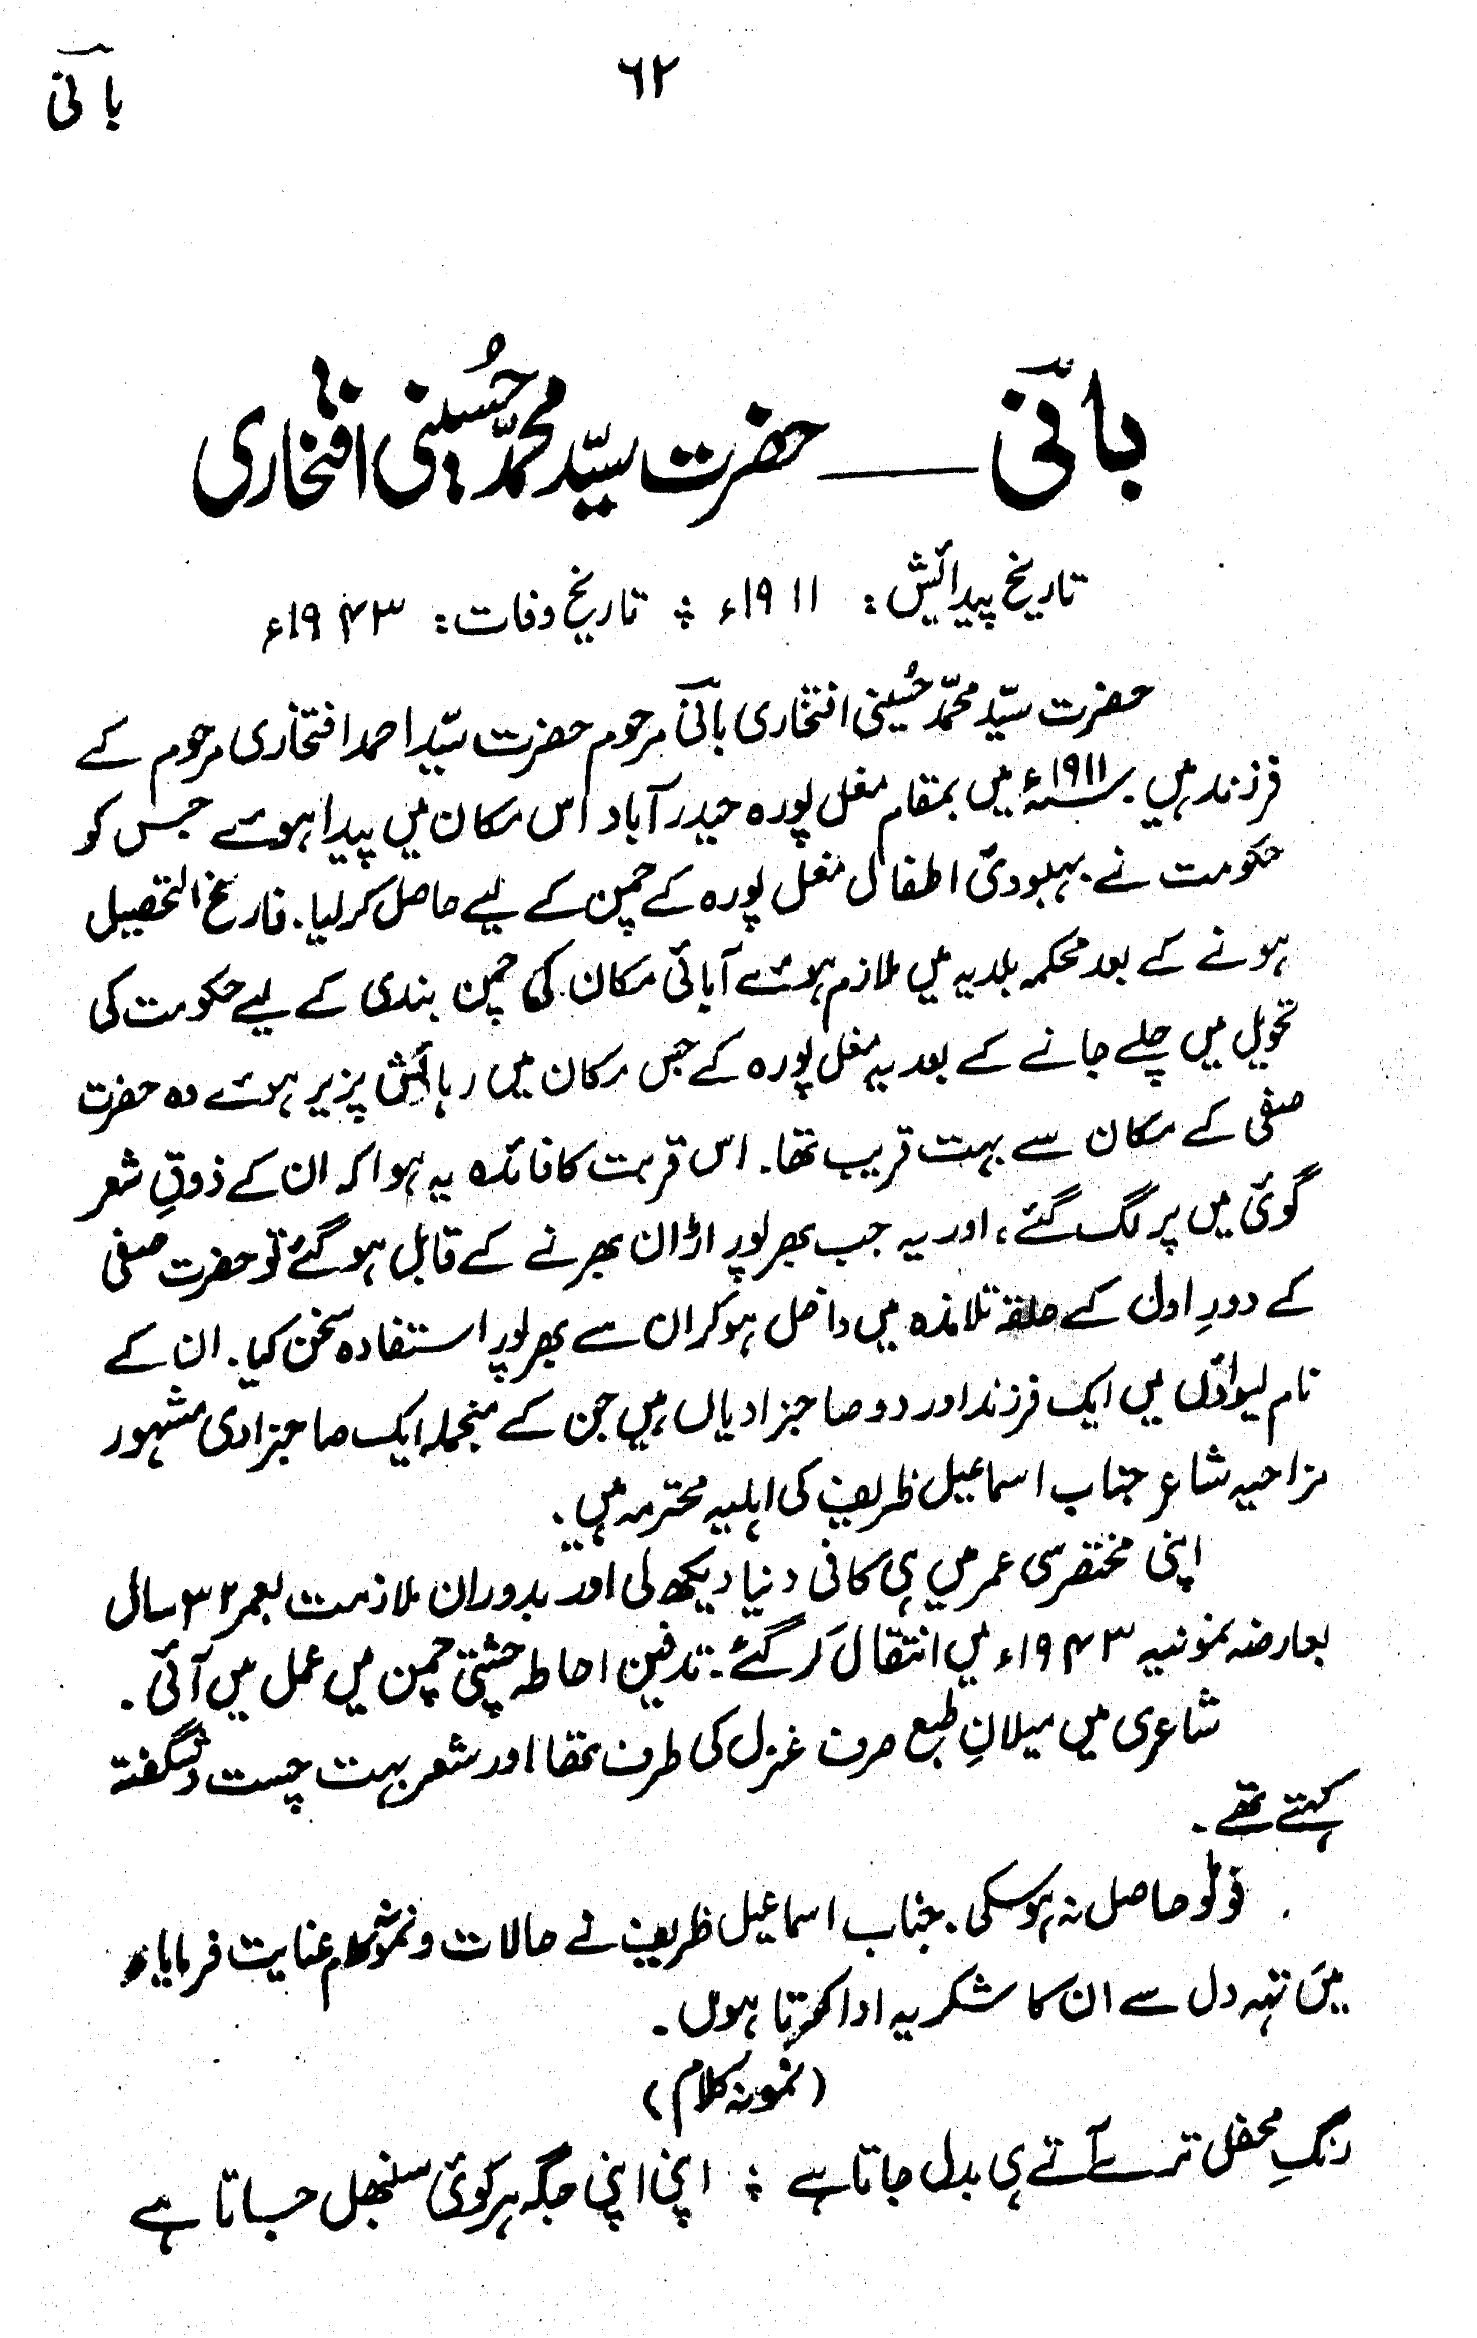 ۶۲
بانی
بانی ــــ حضرت سیّد محمّد حُسینی افتخاری
تاریخ پیدائش: ۱۹۱۱ء ؞ تاریخ وفات: ۱۹۴۳ء
حضرت سیّد محمّد حُسینی افتخاری بانی مرحوم حضرت سیّد احمد افتخاری مرحوم کے
فرزند ہیں۔ ۱۹۱۱ء میں بمقام مغل پورہ حیدرآباد اس مکان میں پیدا ہوئے جس کو
حکومت نے بہبودیٔ اطفال مغل پورہ کے چمن کے لیے حاصل کرلیا۔ فارغ التحصیل
ہونے کے بعد محکمہ بلدیہ میں ملازم ہوئے آبائی مکان کی چمن بندی کے لیے حکومت کی
تحویل میں چلے جانے کے بعد یہ مغل پورہ کے جس مکان میں رہائش پزیر ہوئے وہ حضرت
صفی کے مکان سے بہت قریب تھا۔ اس قربت کا فائدہ یہ ہوا کہ ان کے ذوقِ شعر
گوئی میں پر لگ گئے، اور یہ جب بھرپور اڑان بھرنے کے قابل ہوگئے تو حضرت صفی
کے دورِ اول کے حلقہ تلامذہ میں داخل ہوکر ان سے بھرپور استفادہ سخن کیا۔ ان کے
نام لیواؤں میں ایک فرزند اور دو صاحبزادیاں ہیں جن کے منجملہ ایک صاحبزادی مشہور
مزاحیہ شاعر جناب اسماعیل ظریف کی اہلیہ محترمہ ہیں۔
اپنی مختصر سی عمر میں ہی کافی دنیا دیکھ لی اور بدوران ملازمت بعمر ۳۲ سال
بعارضہ نمونیہ ۱۹۴۳ء میں انتقال کر گئے۔ تدفین احاطہ چشتی چمن میں عمل میں آئی۔
شاعری میں میلانِ طبع صرف غزل کی طرف تھا اور شعر بہت چست و شگفتہ
کہتے تھے۔
فوٹو حاصل نہ ہوسکی۔ جناب اسماعیل ظریف نے حالات و نمونہ کلام عنایت فرمایا
میں تہہ دل سے ان کا شکریہ ادا کرتا ہوں۔
(نمونہ کلام)
رنگِ محفل ترے آتے ہی بدل جاتا ہے ؞ اپنی اپنی جگہ ہر کوئی سنبھل جاتا ہے